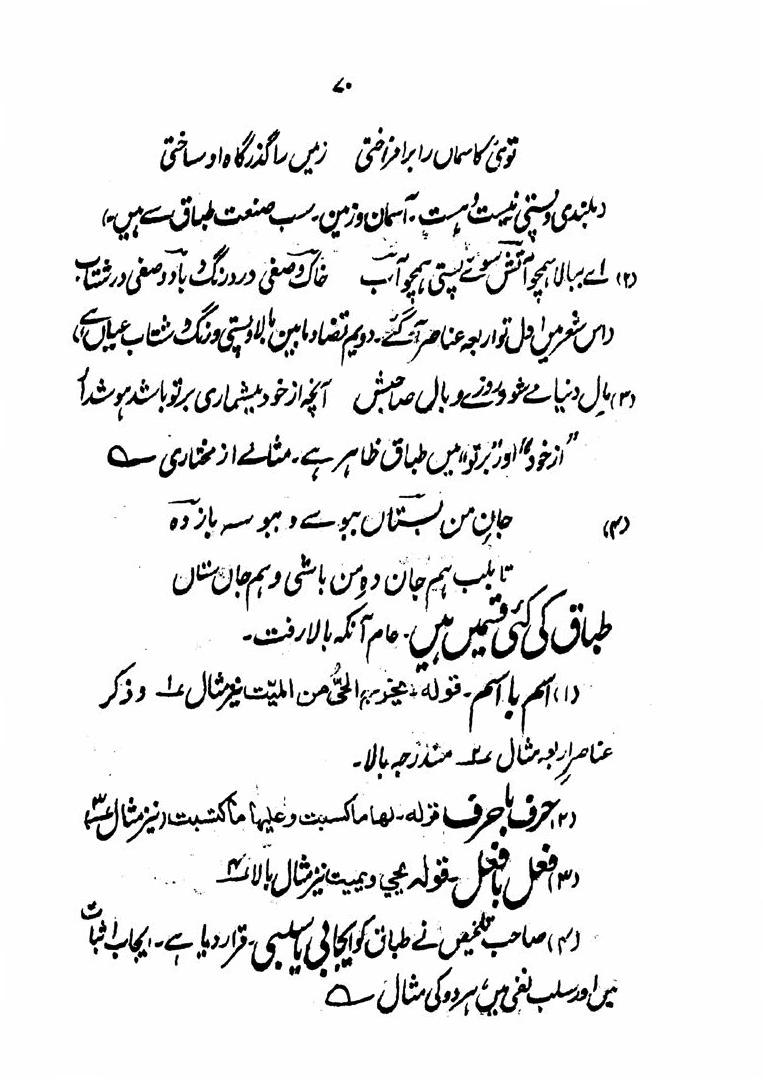 ۷۰
توئی کاسماں را برافراختی زمیں را گذرگاہ او ساختی
(بلندی و پستی نیست و ہست۔ آسمان و زمین۔ سب صنعت طباق سے ہیں۔)
(۲) اے ببالا ہمچو آتش سوئے پستی ہمچو آب خاک وصفی در درنگ و باد وصفی در شتاب
(اس شعر میں اول تو اربعہ عناصر آ گئے۔ دویم تضاد مابین بالا و پستی و رنگ و شتاب عیاں ہے)
(۳) مال دنیا مے شود روزے وبال صاحبش آنچہ از خود بیشماری بر تو باشد
"از خود" اور "بر تو" میں طباق ظاہر ہے۔ مثالے از مختاری ؎
(۴) جانِ من بستاں ببوسے و ببوسہ باز دہ
تا بلب ہم جان دہِ من باشی و ہم جاں ستاں
طباق کی کئی قسمیں ہیں۔ عام آنکہ بالا رفت۔
(۱) اسم با اسم۔ قولہ۔ یخرج الحیُّ من المیّت نیز مثال ۱ و ذکر
عناصرِ اربعہ مثال ۲ مندرجہ بالا۔
(۲) حرف با حرف قولہ۔ لھا ما کسبت وعلیھا ما کتسبت (نیز مثال ۳)
(۳) فعل با فعل۔ قولہ یحیي ویمیت نیز مثال بالا ۴
(۴) صاحب تلخیص نے طباق کو ایجابی یا سلبی۔ قرار دیا ہے۔ ایجاب اثبات
میں اور سلب نفی میں، ہر دو کی مثال ؎